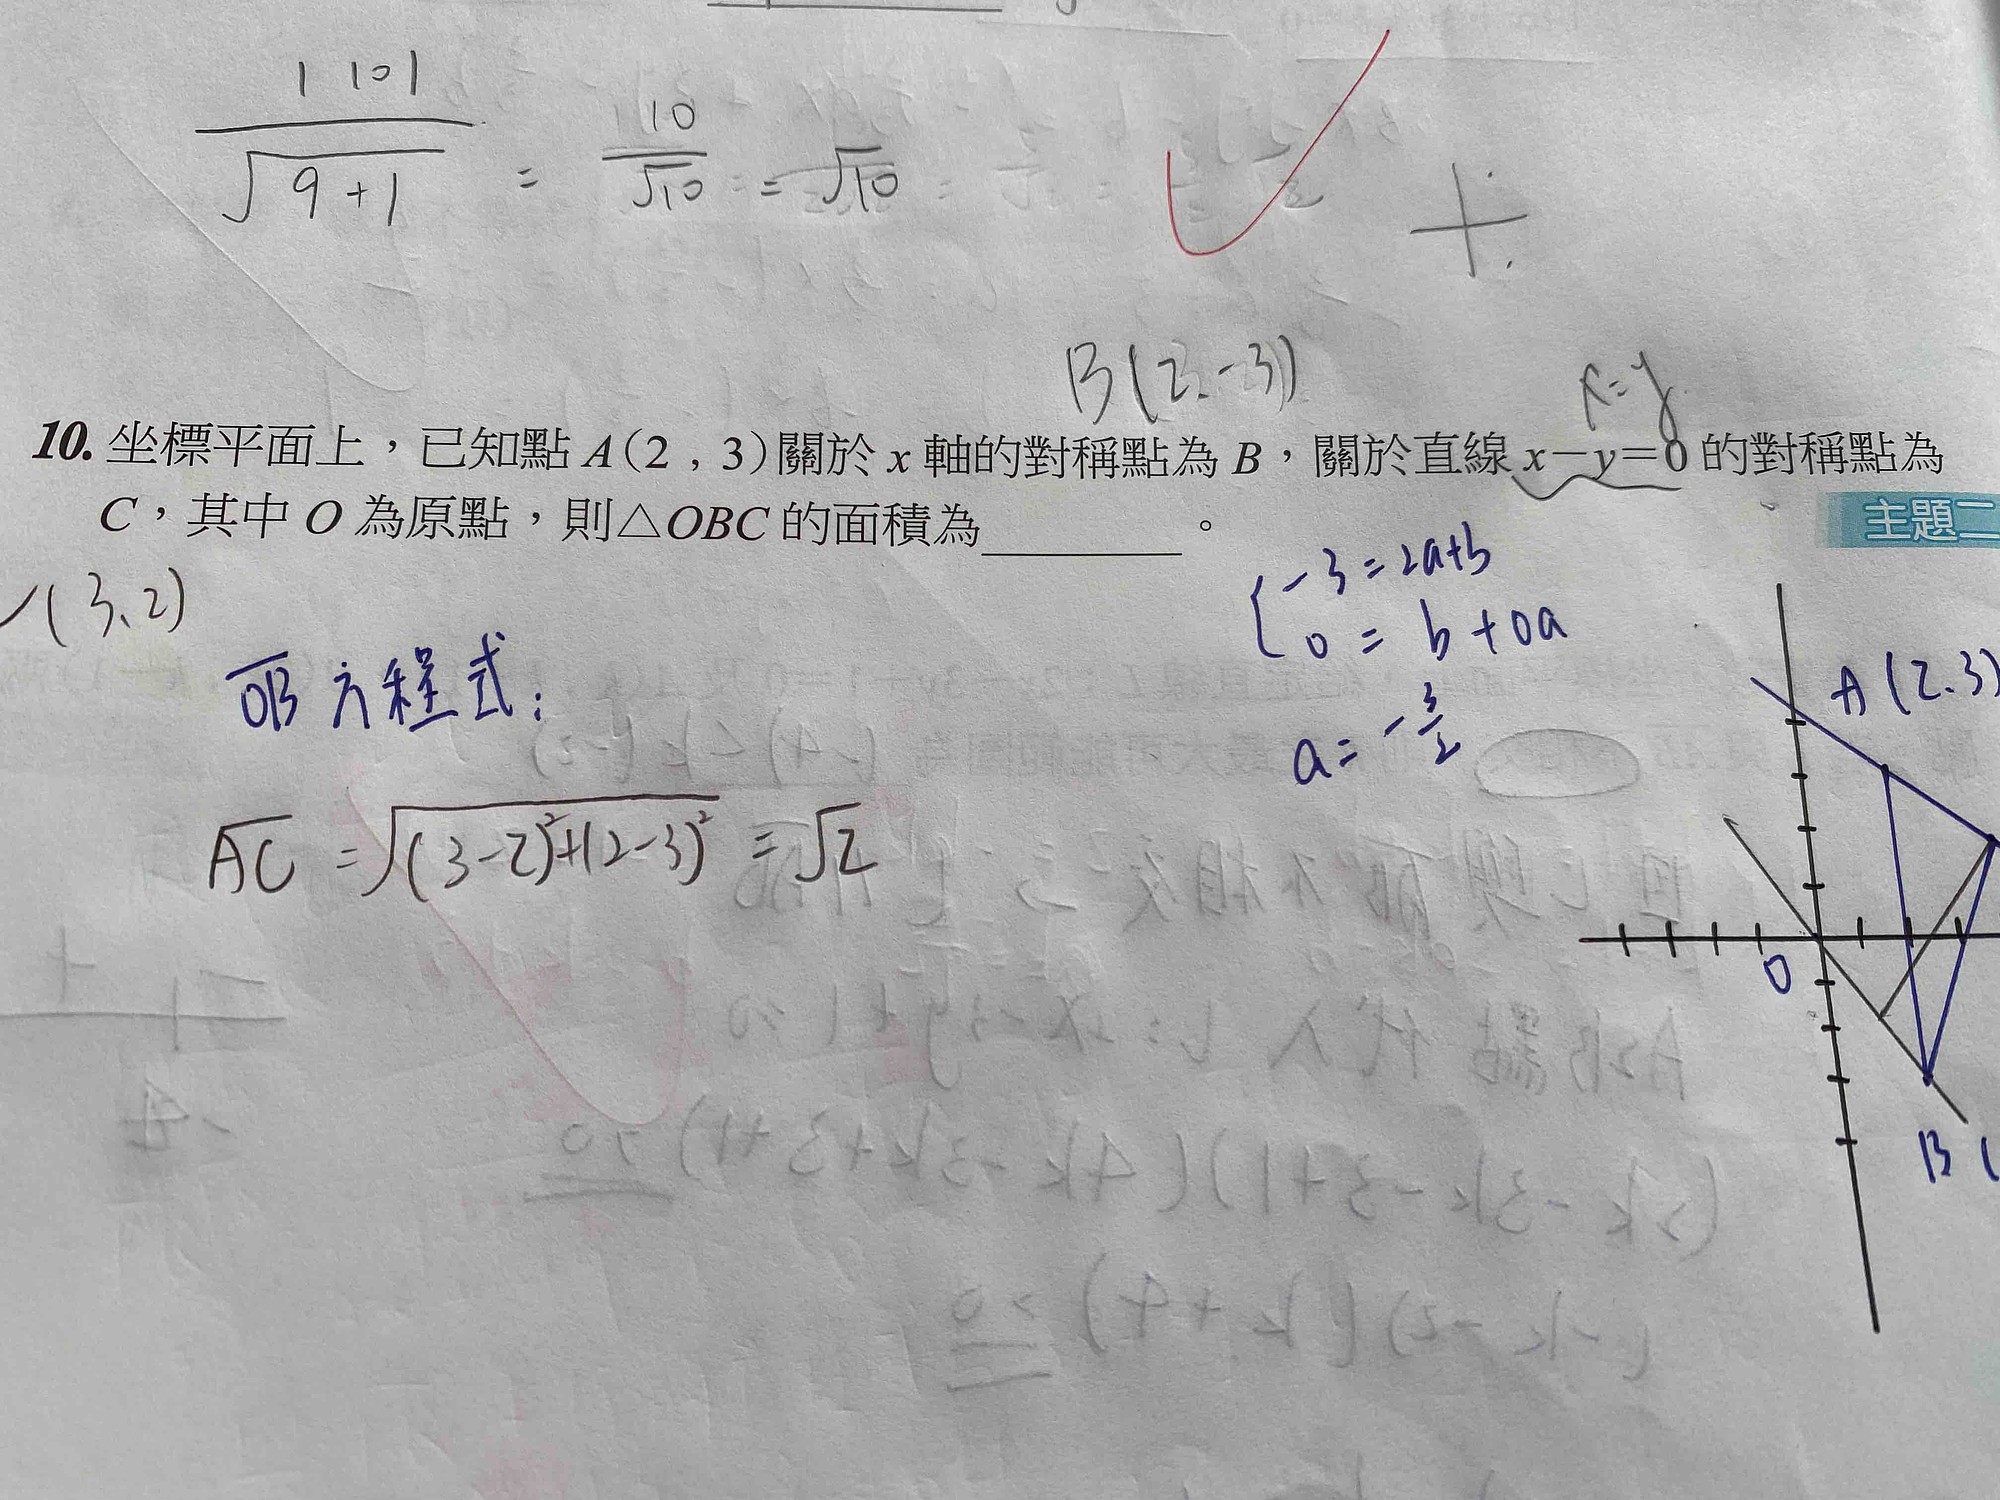 |10|
√9+1 = 10/√10 = √10
B(2,-3)
x=y
10. 坐標平面上，已知點 A(2，3)關於 x 軸的對稱點為 B，關於直線 x−y=0 的對稱點為
C，其中 O 為原點，則△OBC 的面積為________。
主題二
(3,2)
-3=2a+b
0=b+0a
OB 方程式：
a=-3/2
A(2,3)
AC=√(3-2)²+(2-3)² =√2
O
B(